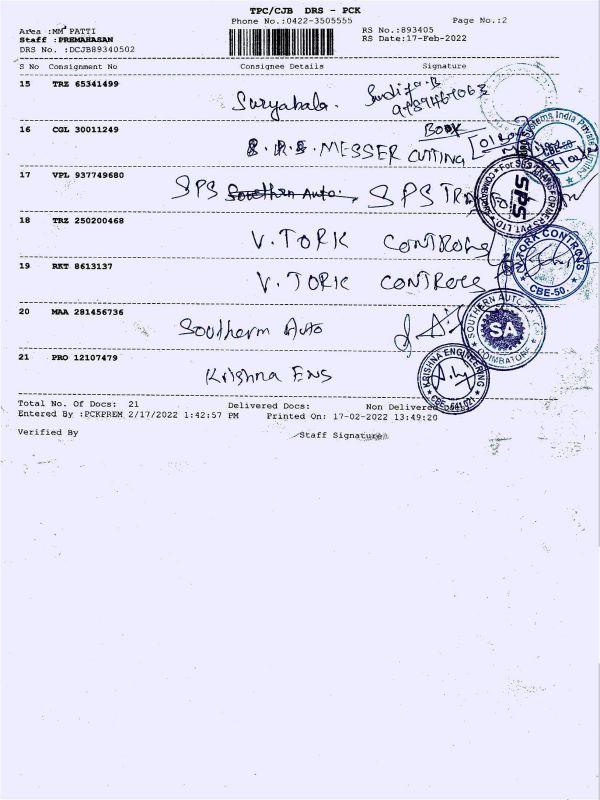 TPC/CJB DRS - PCK
Phone No.:0422-3505555 Page No.:2
Area :MM PATTI RS No.:893405
Staff :PREMAHASAN RS Date:17-Feb-2022
DRS No. :DCJB89340502
S No Consignment No Consignee Details Signature
15 TRZ 65341499 Suryabala.
16 CGL 30011249 MESSER CUTTING BOOK
Systems India Private Limited
17 VPL 937749680 SPS Southern Auto. SPS
For SPS TRANSFORMERS PVT. LTD COIMBATORE
SPS
18 TRZ 250200468 V. TORK CONTROLS
V-TORK CONTROLS
CBE-50.
19 RKT 8613137 V. TORK CONTROLS
20 MAA 281456736 Southern Auto
SOUTHERN AUTO
SA
COIMBATORE
21 PRO 12107479 Krishna ENS
KRISHNA ENGINEERING
CBE-641 021
Total No. Of Docs: 21 Delivered Docs: Non Delivered
Entered By :PCKPREM 2/17/2022 1:42:57 PM Printed On: 17-02-2022 13:49:20
Verified By Staff Signature